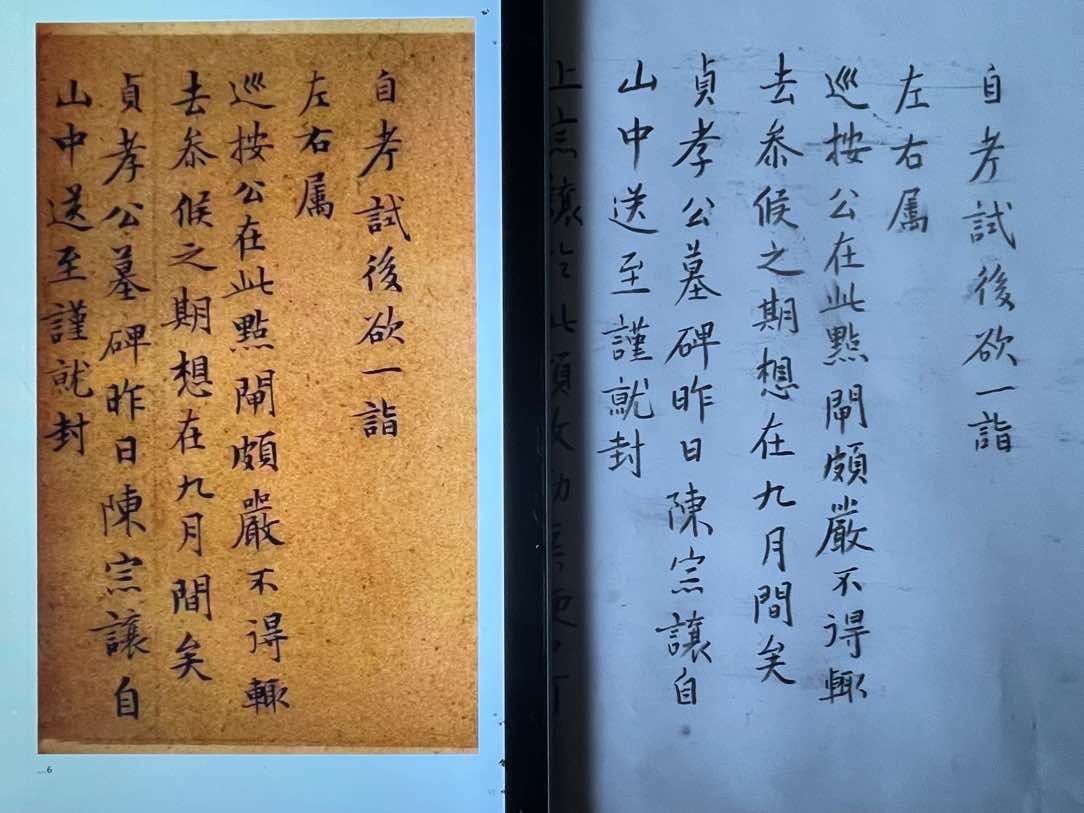 自考試後欲一詣
左右属
巡按公在此點閘頗嚴不得輙
去叅候之期想在九月間矣
貞孝公墓碑昨日陳宗讓自
山中送至謹就封
6
自考試後欲一詣
左右属
巡按公在此點閘頗嚴不得輙
去叅候之期想在九月間矣
貞孝公墓碑昨日陳宗讓自
山中送至謹就封